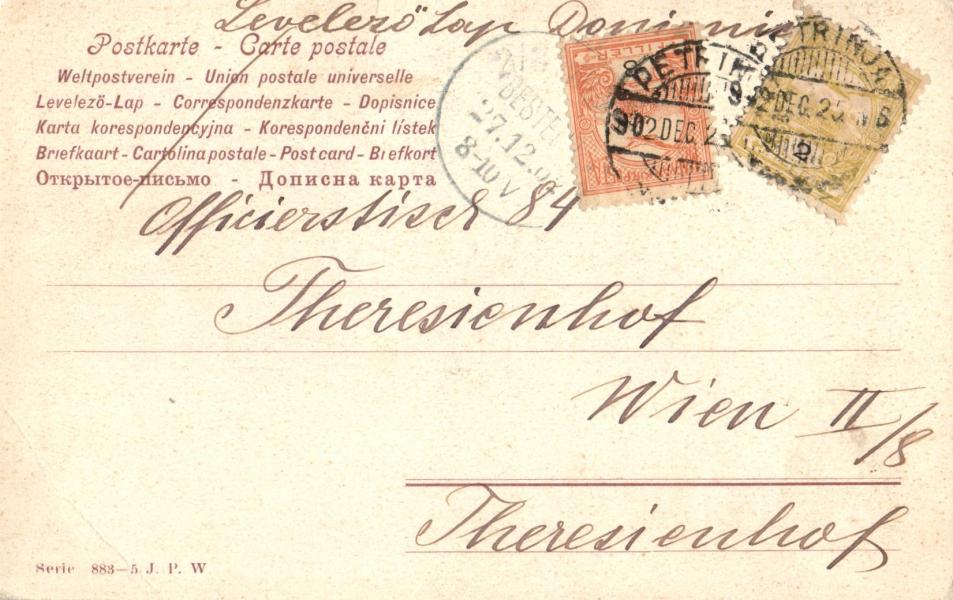 Levelező Lap
Postkarte - Carte postale
Weltpostverein - Union postale universelle
Levelező-Lap - Correspondenzkarte - Dopisnice
Karta korespondencyjna - Korespondenční lístek
Briefkaart - Cartolina postale - Post card - Brefkort
Открытое-письмо - Дописна карта
BESTE
27.12.
8-10 V
FILLER
PETRINJA
902 DEC 25
2
Officierstisch 84
Theresienhof
Wien II/8
Theresienhof
Serie 883-5 J. P. W